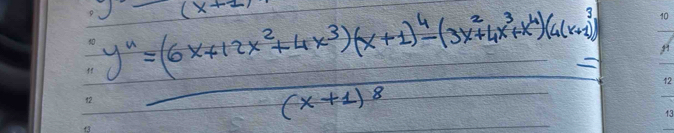 9 y (x+1)
10 y" = (6x+12x²+4x³)(x+1)⁴-(3x²+4x³+x⁴)(4(x+1)³) 10
11 = 11
12 (x+1)⁸ 12
13 13